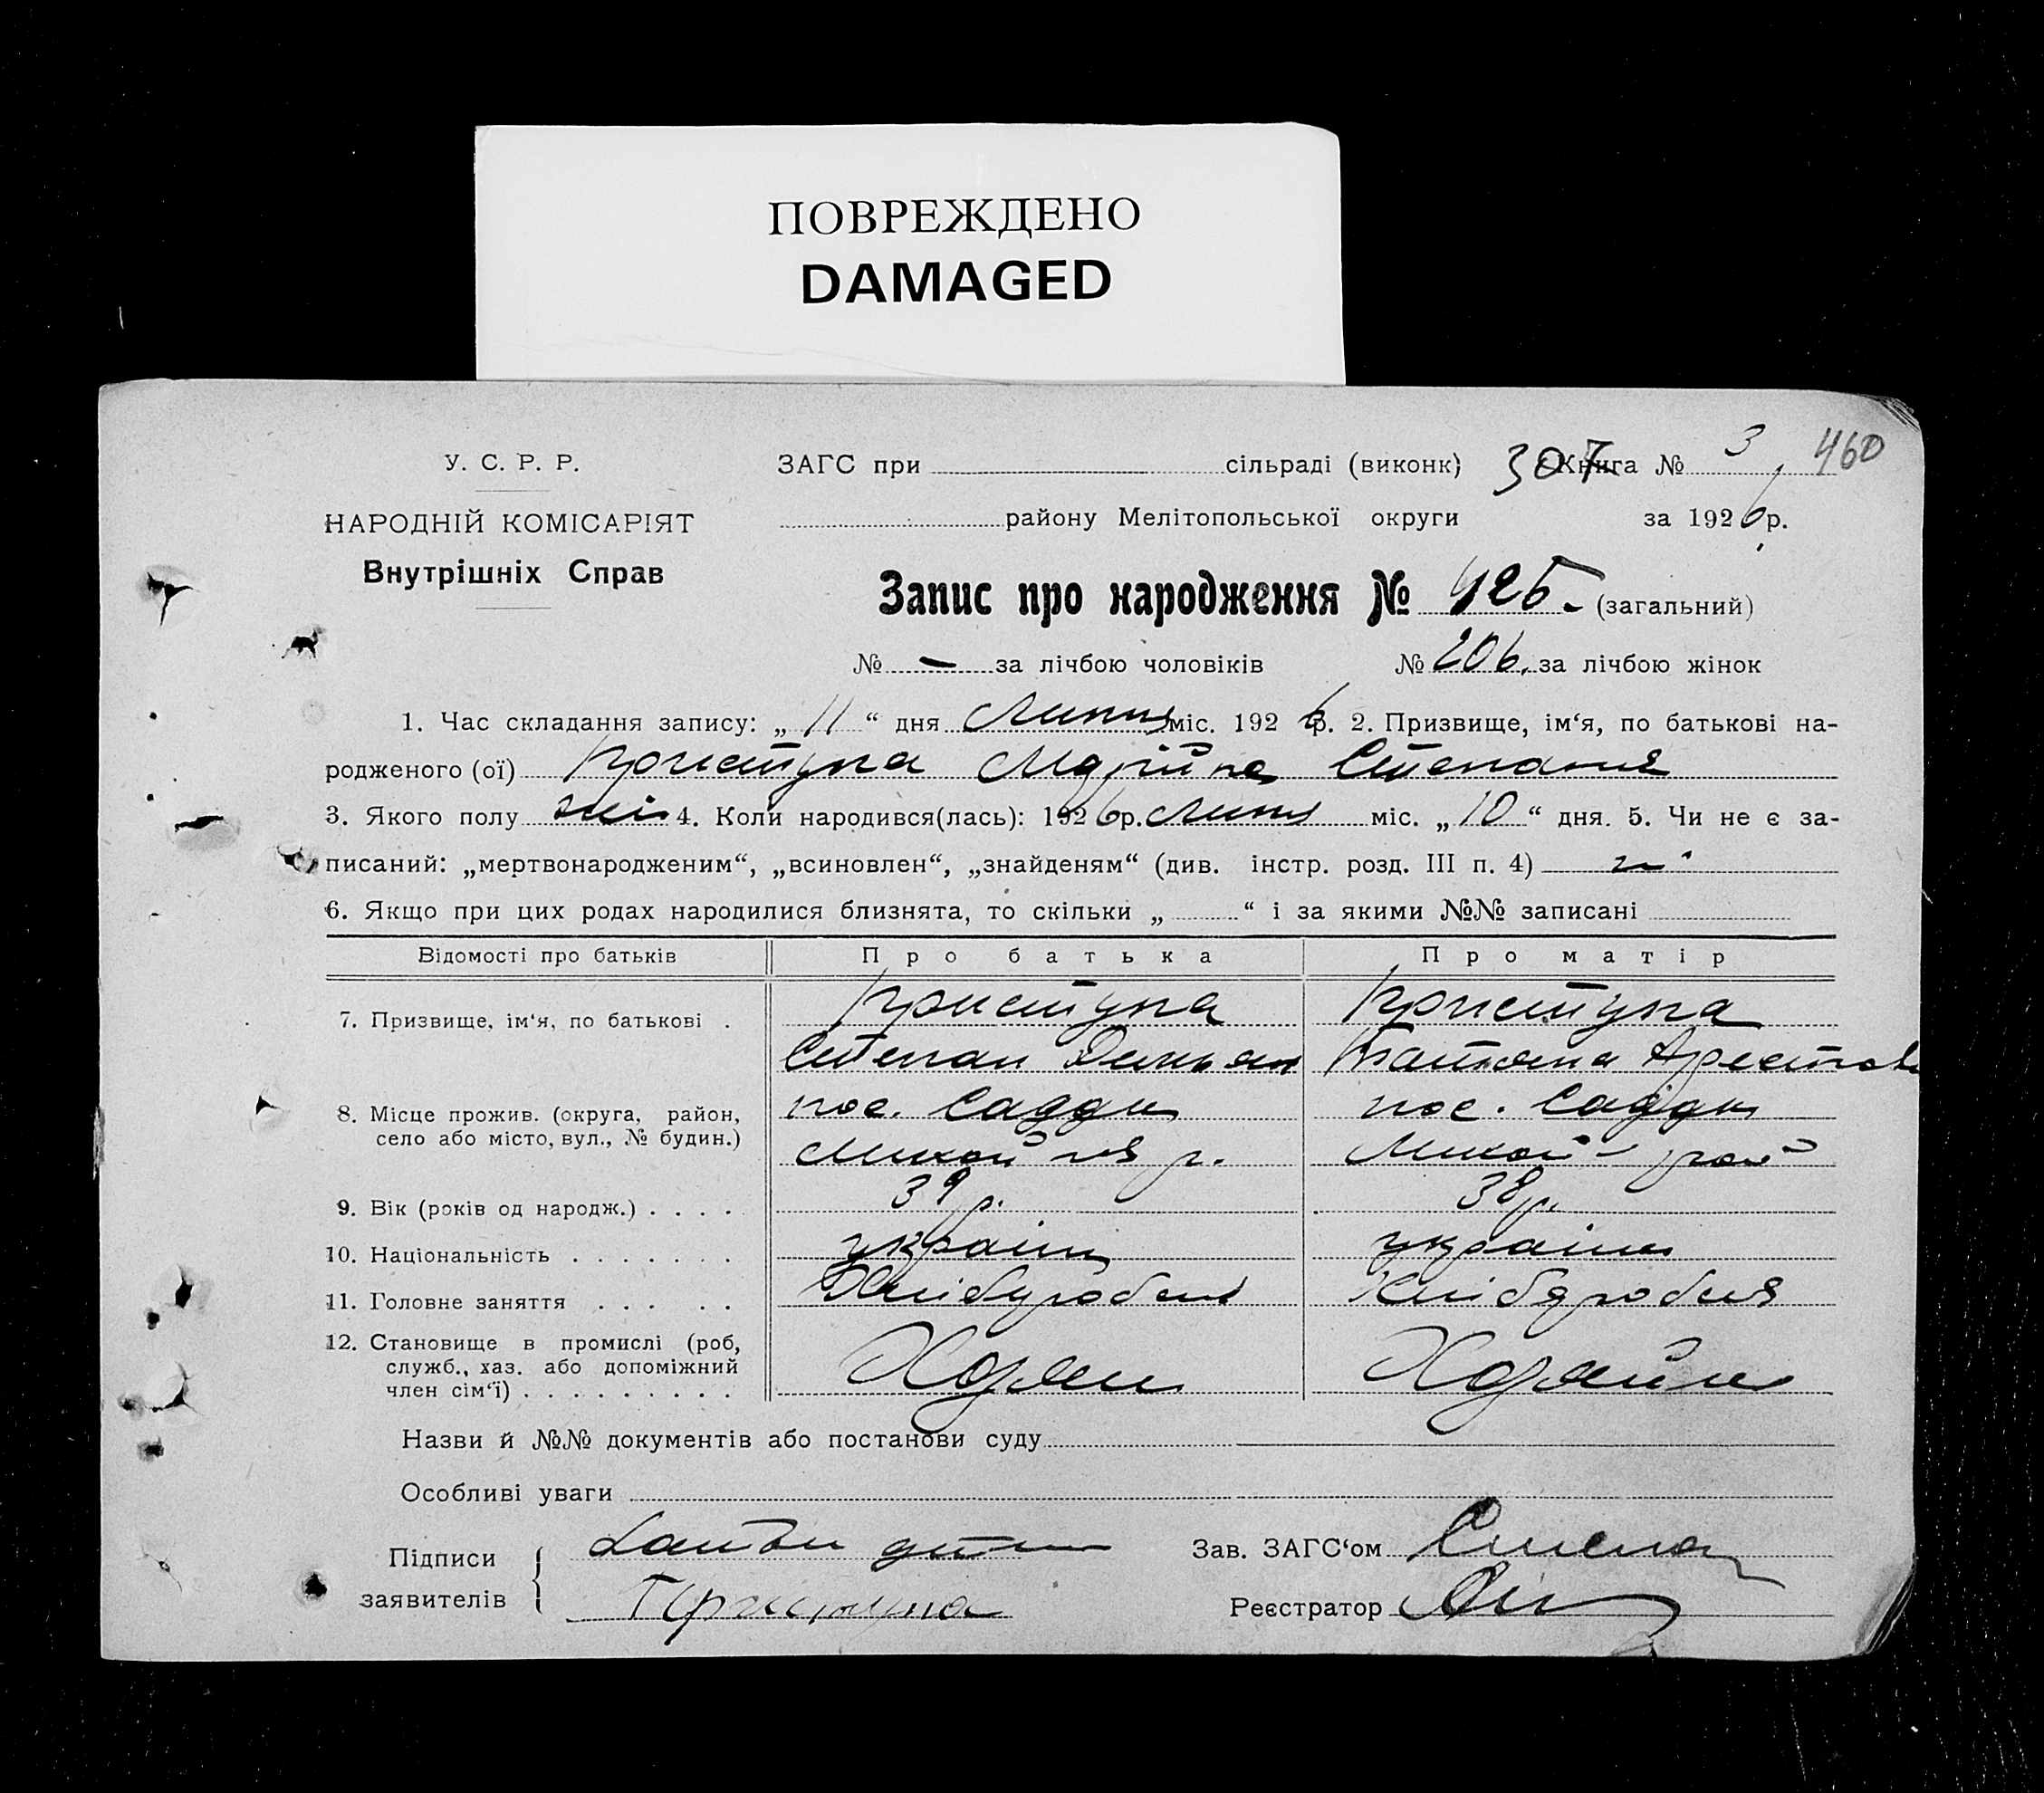 ПОВРЕЖДЕНО
DAMAGED
460
У. С. Р. Р.
ЗАГС при сільраді (виконк) 307 Книга № 3
НАРОДНІЙ КОМІСАРІЯТ
району Мелітопольської округи за 1926 р.
Внутрішніх Справ
Запис про народження № 425 (загальний)
№ — за лічбою чоловіків № 206. за лічбою жінок
1. Час складання запису: „ 11 “ дня Липня міс. 1926 р. 2. Призвище, ім‘я, по батькові на-
родженого (ої) Приступа
3. Якого полу жін 4. Коли народився(лась): 1926 р. Липня міс. „ 10 “ дня. 5. Чи не є за-
писаний: „мертвонародженим“, „всиновлен“, „знайденям“ (див. інстр. розд. III п. 4)
6. Якщо при цих родах народилися близнята, то скільки „ “ і за якими №№ записані
Відомості про батьків
Про батька
Про матір
7. Призвище, ім‘я, по батькові .
Приступа
Приступа
Степан
8. Місце прожив. (округа, район,
село або місто, вул., № будин.)
пос.
пос.
9. Вік (років од народж.) . . . .
39 р.
38 р.
10. Національність . . . . . . .
11. Головне заняття . . . . .
12. Становище в промислі (роб,
служб., хаз. або допоміжний
член сім‘ї) . . . . . . . . .
Назви й №№ документів або постанови суду
Особливі уваги
Підписи
заявителів
Приступа
Зав. ЗАГС‘ом
Реєстратор